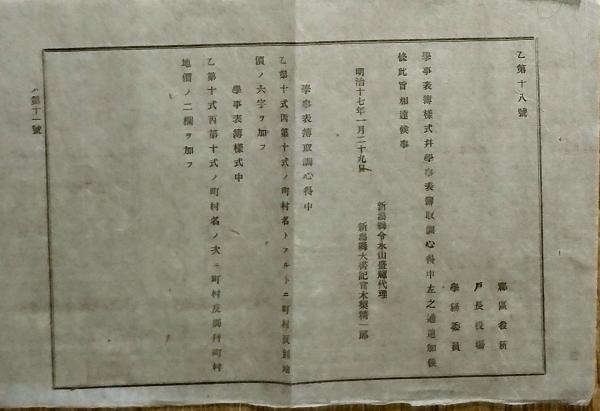 乙第十八號
郡區役所
戶長役場
學務委員
學事表簿樣式幷學事表簿取調心得中左之通追加候
條此旨相達候事
明治十七年一月二十九日
新潟縣令永山盛輝代理
新潟縣大書記官木梨精一郎
學事表簿取調心得中
乙第十式丙第十式ノ町村名トアル下ニ町村反別地
價ノ六字ヲ加フ
學事表簿樣式中
乙第十式丙第十式ノ町村名ノ次ニ町村反別町村
地價ノ二欄ヲ加フ
第十一號